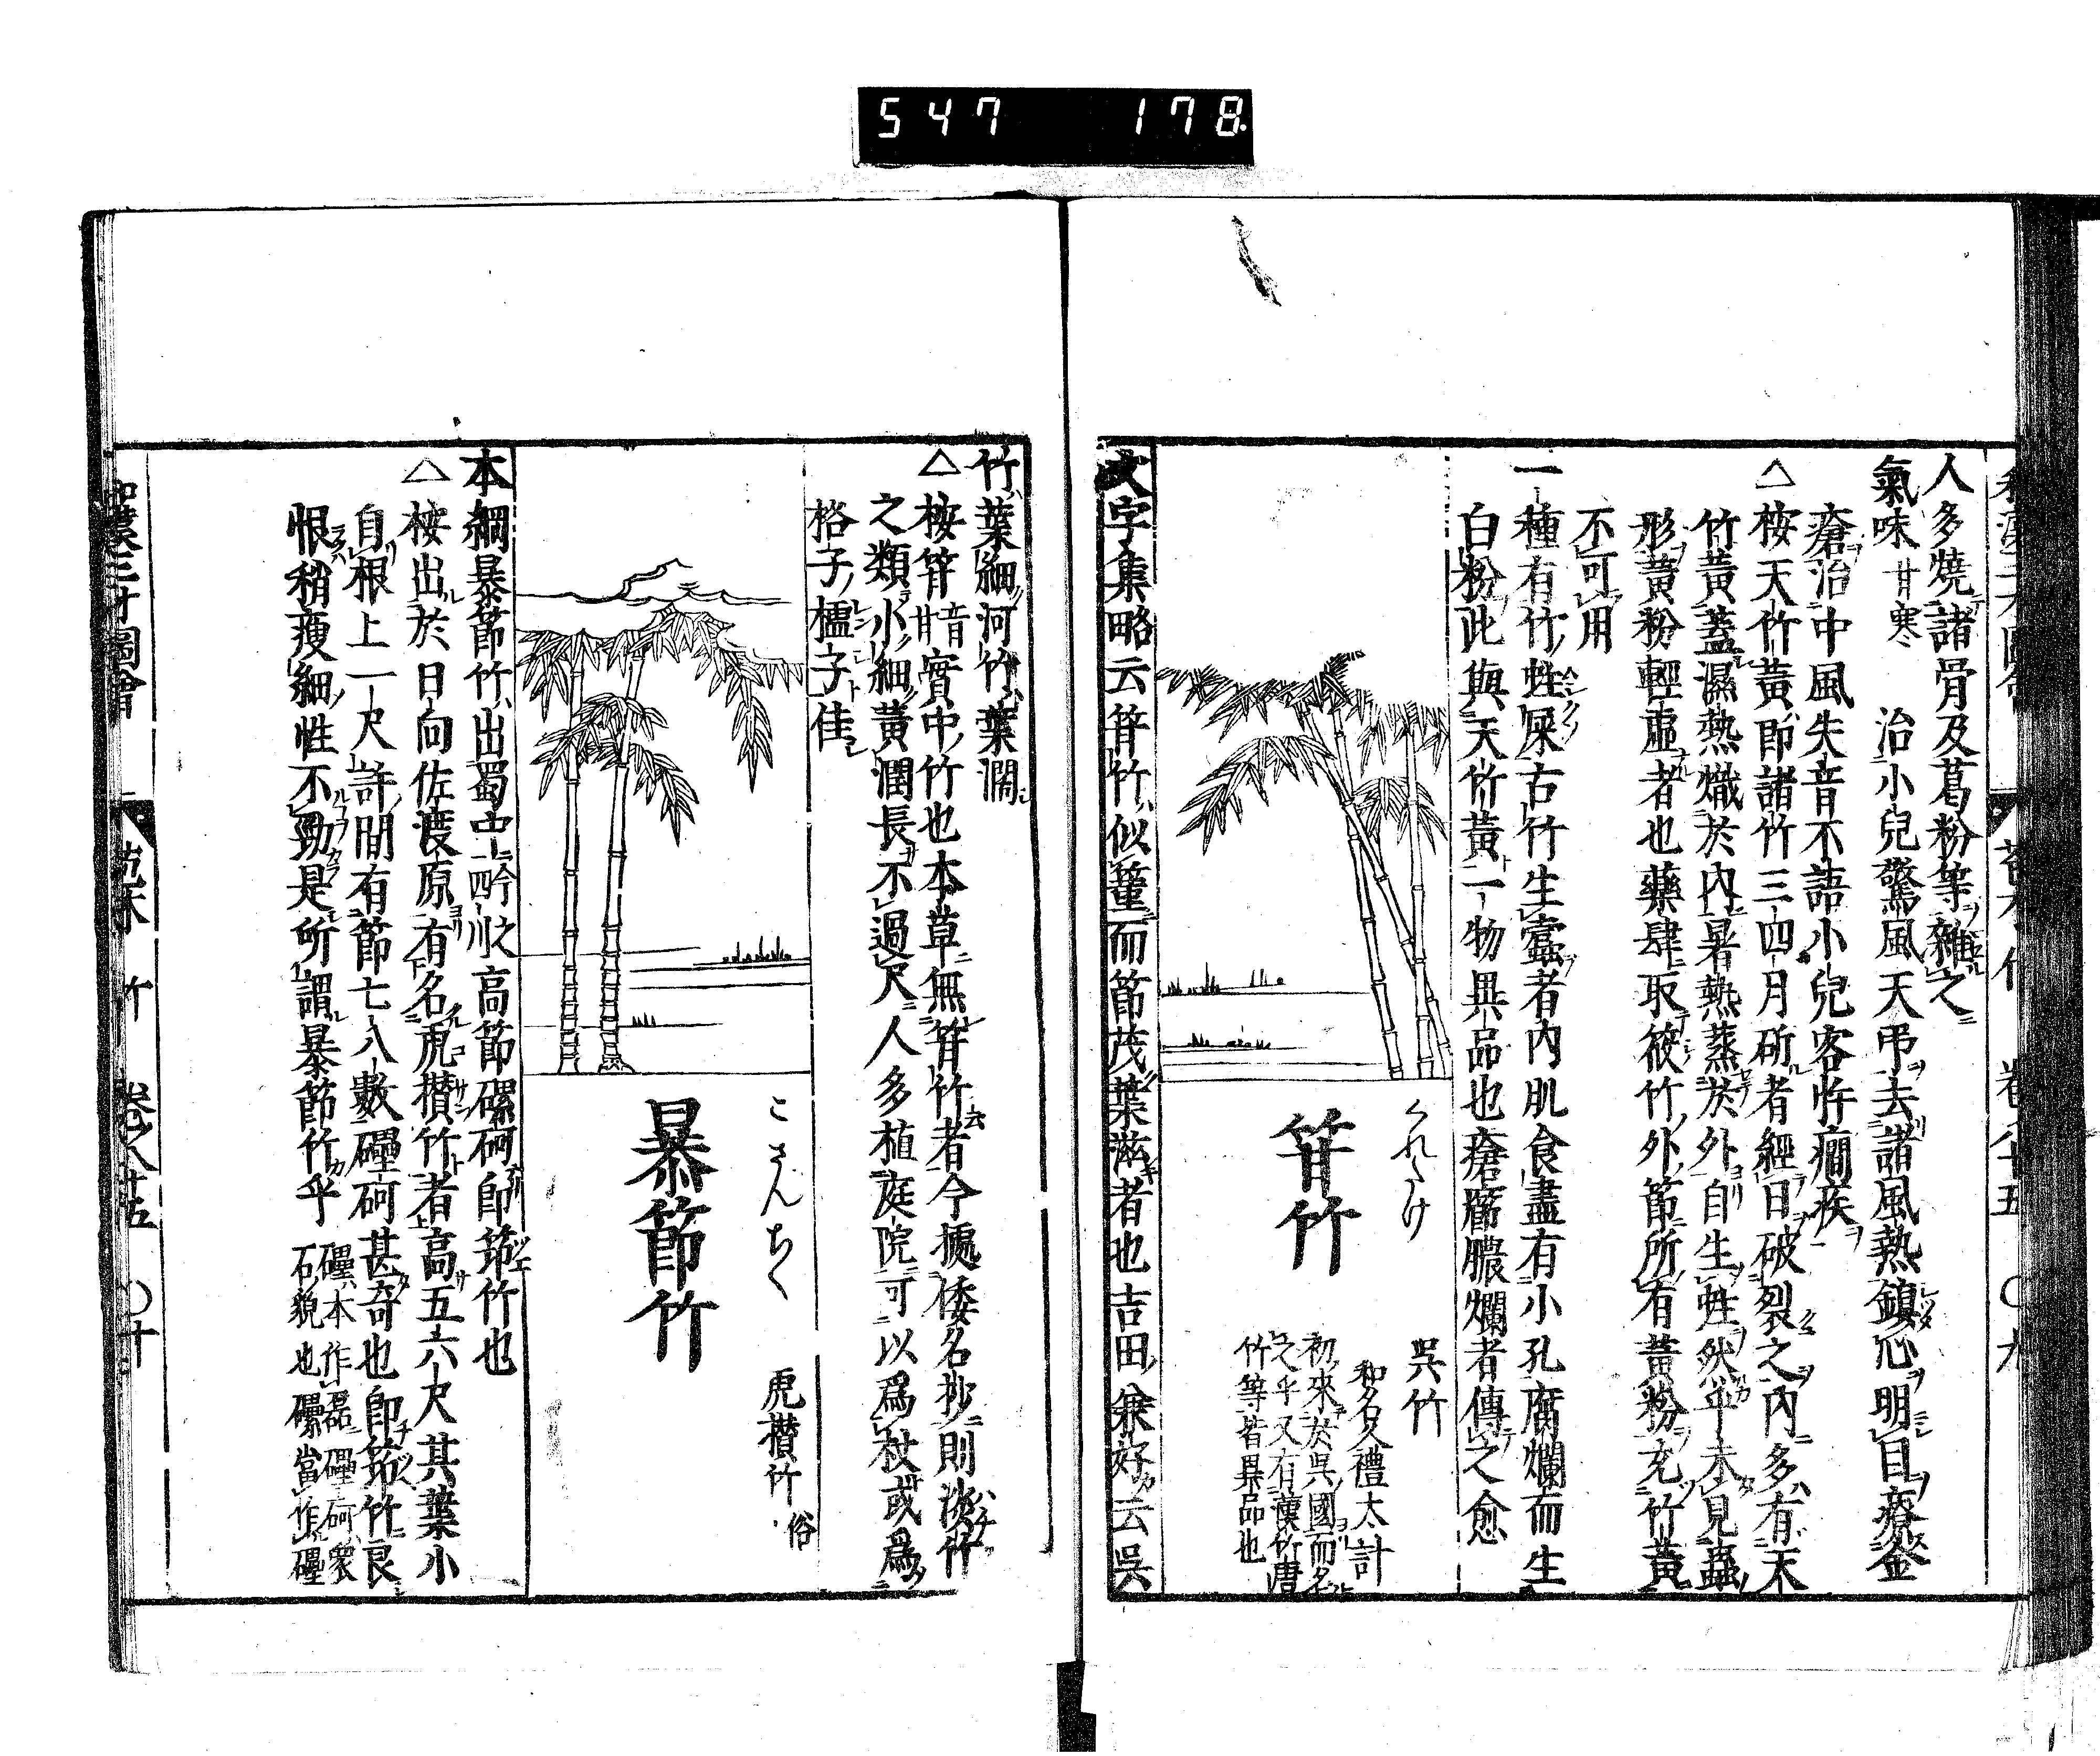 547 178
人多燒諸骨及葛粉等雜之
氣味 甘寒 治小兒驚風天弔去諸風熱鎮心明目療金
瘡治中風失音不語小兒客忤癇疾
△ 按天竹黃即諸竹三四月斫者經日破裂之內多有天
竹黃蓋濕熱熾於內暑熱蒸於外自生蛀然乎未見蟲
形黃粉輕虛者也藥肆取筱竹外節所有黃粉充竹黃
不可用
一種有竹蛀屎古竹生蠹者內肌食盡有小孔腐爛而生
白粉此與天竹黃一物異品也瘡癤膿爛者傳之愈
くれたけ
笄竹
吳竹
和名久禮太計
初來於吳國而名
之乎又有漢竹唐
竹等皆異品也
文字集略云笄竹似篁而節茂葉滋者也吉田兼好云吳
竹葉細河竹葉濶
△ 按笄音甘實中竹也本草無笄竹者今據倭名抄則淡竹
之類小細黃潤長不過尺人多植庭院可以爲杖或爲
格子櫺子佳
こさんちく
暴節竹
虎攅竹 俗
本綱暴節竹出蜀中今之四川高節磥砢即筇竹也
△ 按出於日向佐渡原有名虎攅竹者高五六尺其葉小
自根上一尺許間有節七八數礧砢甚奇也即筇竹良
恨稍瘦細性不勁是所謂暴節竹乎 礧本作磊礧砢衆
石貌也磥當作礧
和漢三才圖會 苞木 竹 卷之八十五 〇十